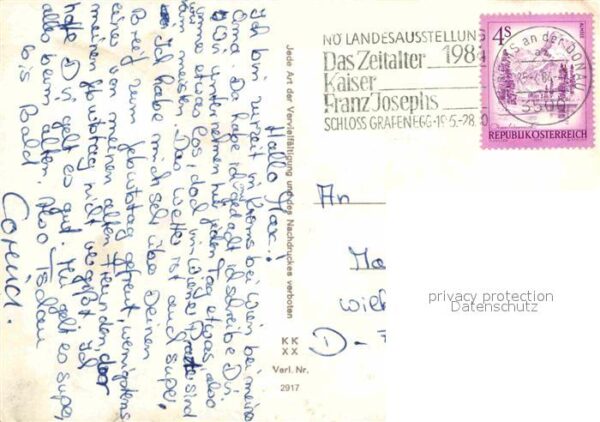 Hallo Max!
Ich bin zurzeit in Krems bei Wien bei meiner
Oma. Da habe ich gedacht ich schreibe Dir
Wir unternehmen hier jeden Tag etwas, also
immer etwas los, doch im Wiener Prater sind
am meisten. Das Wetter ist auch super.
Ich habe mich sehr über Deinen
Brief zum Geburtstag gefreut, wenigstens
einer von meinen alten Freunden, der
meinen Geburtstag nicht vergißt. Ich
hoffe Dir geht es gut. Mir geht es super,
alles beim alten. Also Tschau
bis Bald.
Corina.
Jede Art der Vervielfältigung und des Nachdruckes verboten
KK
XX
Verl. Nr.
2917
NÖ LANDESAUSSTELLUNG
Das Zeitalter 1984
Kaiser
Franz Josephs
SCHLOSS GRAFENEGG-19.5.-28.10
KREMS an der DONAU
3500
4S
REPUBLIK ÖSTERREICH
An
privacy protection
Datenschutz